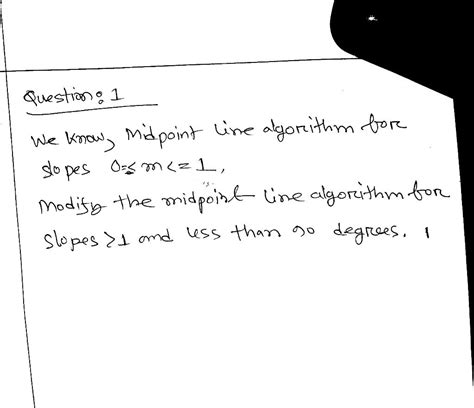 Question: 1
We know, Midpoint Line algorithm for
slopes 0<=m<=1,
Modify the midpoint line algorithm for
slopes >1 and less than 90 degrees.